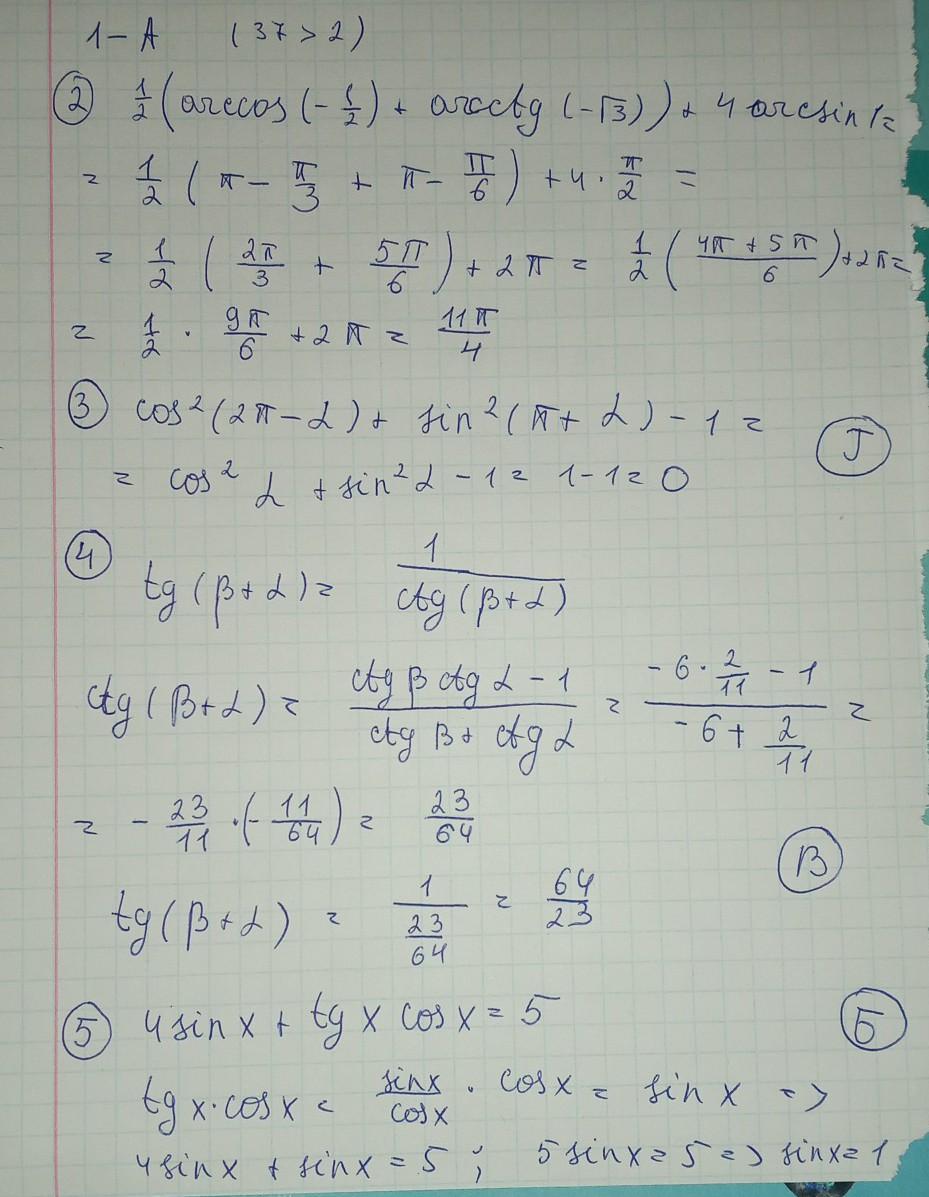 1 – А ( 37 > 2 )
② 1/2 (arccos (-1/2) + arcctg (-√3)) + 4 arcsin 1 =
= 1/2 ( π - π/3 + π - π/6 ) + 4 · π/2 =
= 1/2 ( 2π/3 + 5π/6 ) + 2π = 1/2 ( (4π + 5π)/6 ) + 2π =
= 1/2 · 9π/6 + 2π = 11π/4
③ cos² (2π - α) + sin² (π + α) - 1 =
Г
= cos² α + sin² α - 1 = 1 - 1 = 0
④ tg (β + α) = 1/(ctg (β + α))
ctg (β + α) = (ctg β ctg α - 1)/(ctg β + ctg α) = (-6 · 2/11 - 1)/(-6 + 2/11) =
= - 23/11 · (- 11/64) = 23/64
В
tg (β + α) = 1/(23/64) = 64/23
⑤ 4 sin x + tg x cos x = 5
Б
tg x · cos x = sin x/cos x · cos x = sin x =>
4 sin x + sin x = 5 ; 5 sin x = 5 => sin x = 1